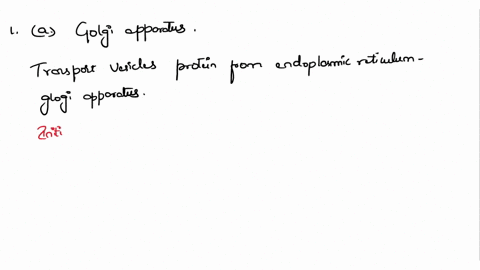 1. (a) Golgi apparatus.
Transport vesicles protein from endoplasmic reticulum -
glogi apparatus.